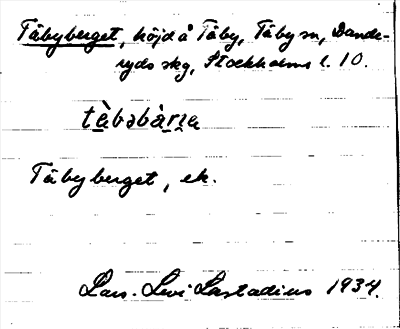 Täbyberget, höjd å Täby, Täby sn, Dande-
ryds skg, Stockholms l. 10.
tä̀bəbàrɪ̯a
Täbyberget, ek.
Lars-Levi Læstadius 1934.